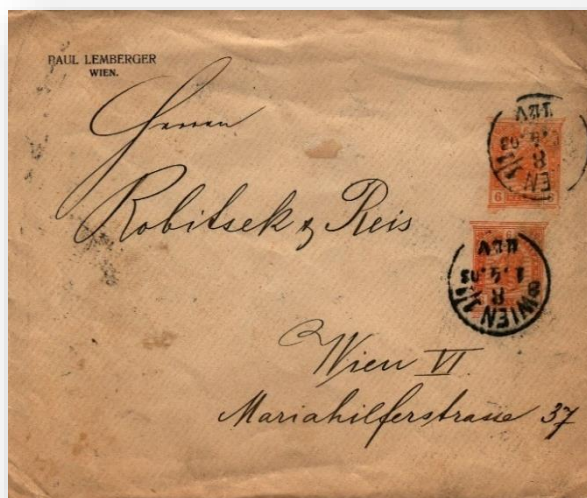 PAUL LEMBERGER
WIEN.
Herren
Robitsek & Reis
Wien VI.
Mariahilferstrasse 37
6
WIEN 1/1
8
1.4.03